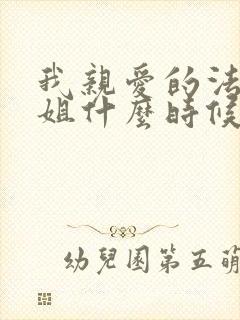 我親愛的法
姐什麼時候
幼兒園第五萌